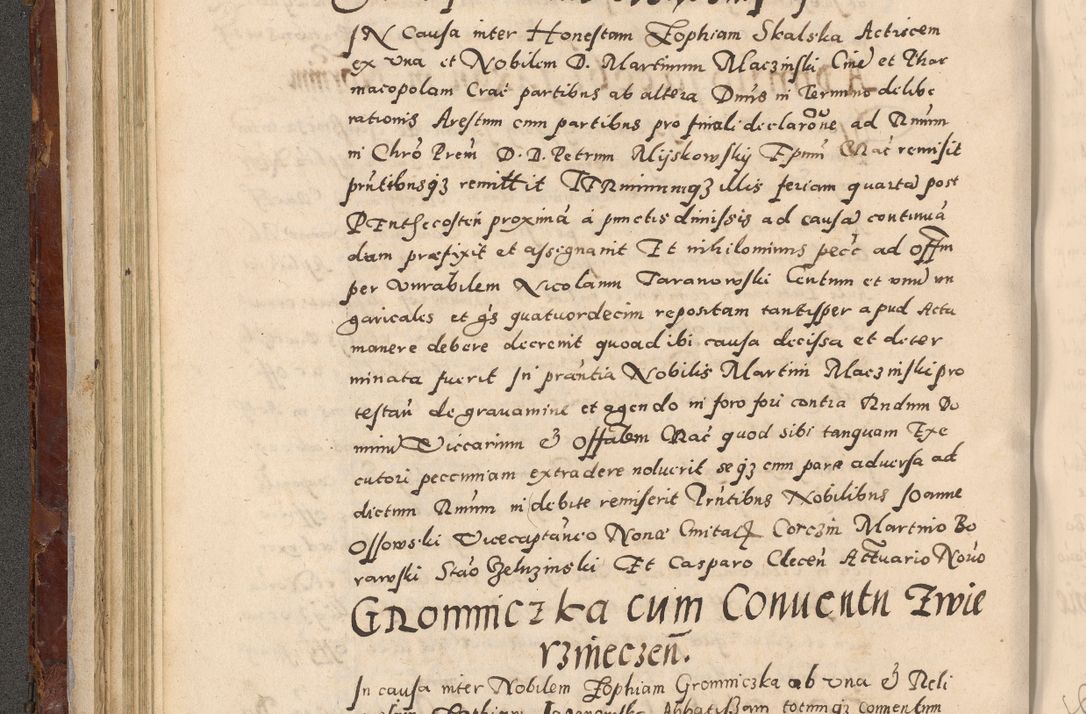 IN causa inter Honestam Zophiam Skalska Actricem
ex vna et Nobilem D. Martinum Maczinski Ciuē et Phar
macopolam Crac̄ partibus ab altera Dn̄us in Termino delibe
rationis Arestum cum partibus pro finali declaro͞ne ad Rmum
in Chrō Prem̄ D. D. Petrum Mijskowskij Ep̄um Crac̄ remisit
prn̄tibusqz remittit TERminumqz illis feriam quarta post
PEnthecosten̄ proximā a punctis dimissis ad causā continuā
dum praefixit et assignauit Et nihilominus pecc̄ ad offm
per Vnrābilem Nicolaum Taranowski Centum et vnū vn
garicales et gs̄ quatuordecim repositam tantisper apud Actu
manere debere decreuit quoad ibi causa decissa et deter
minata fuerit In praēntia Nobilis Martini Maczinski pro
testan̄ de grauamine et agendo in foro fori contra Rndum Do
minū Viccarium & Offālem Crac̄ quod sibi tanquam Exe
cutori peccuniam extradere noluerit seqz cum parte aduersa ad
dictum Rmum indebite remiserit Prn̄tibus Nobilibus Joanne
Ossowski Vicecaptāneo Nonae Ciuitatis Corczin Martino Bo
rawski Stāo Zeluzinski Et Casparo Clecen̄ Actuario Nouo
GROmniczka cum Conuentu Zwie
rzinieczen̄.
In causa inter Nobilem Zophiam Gromniczka ab vna & Reli
Zophiam Abbatissam totumqz conuentum